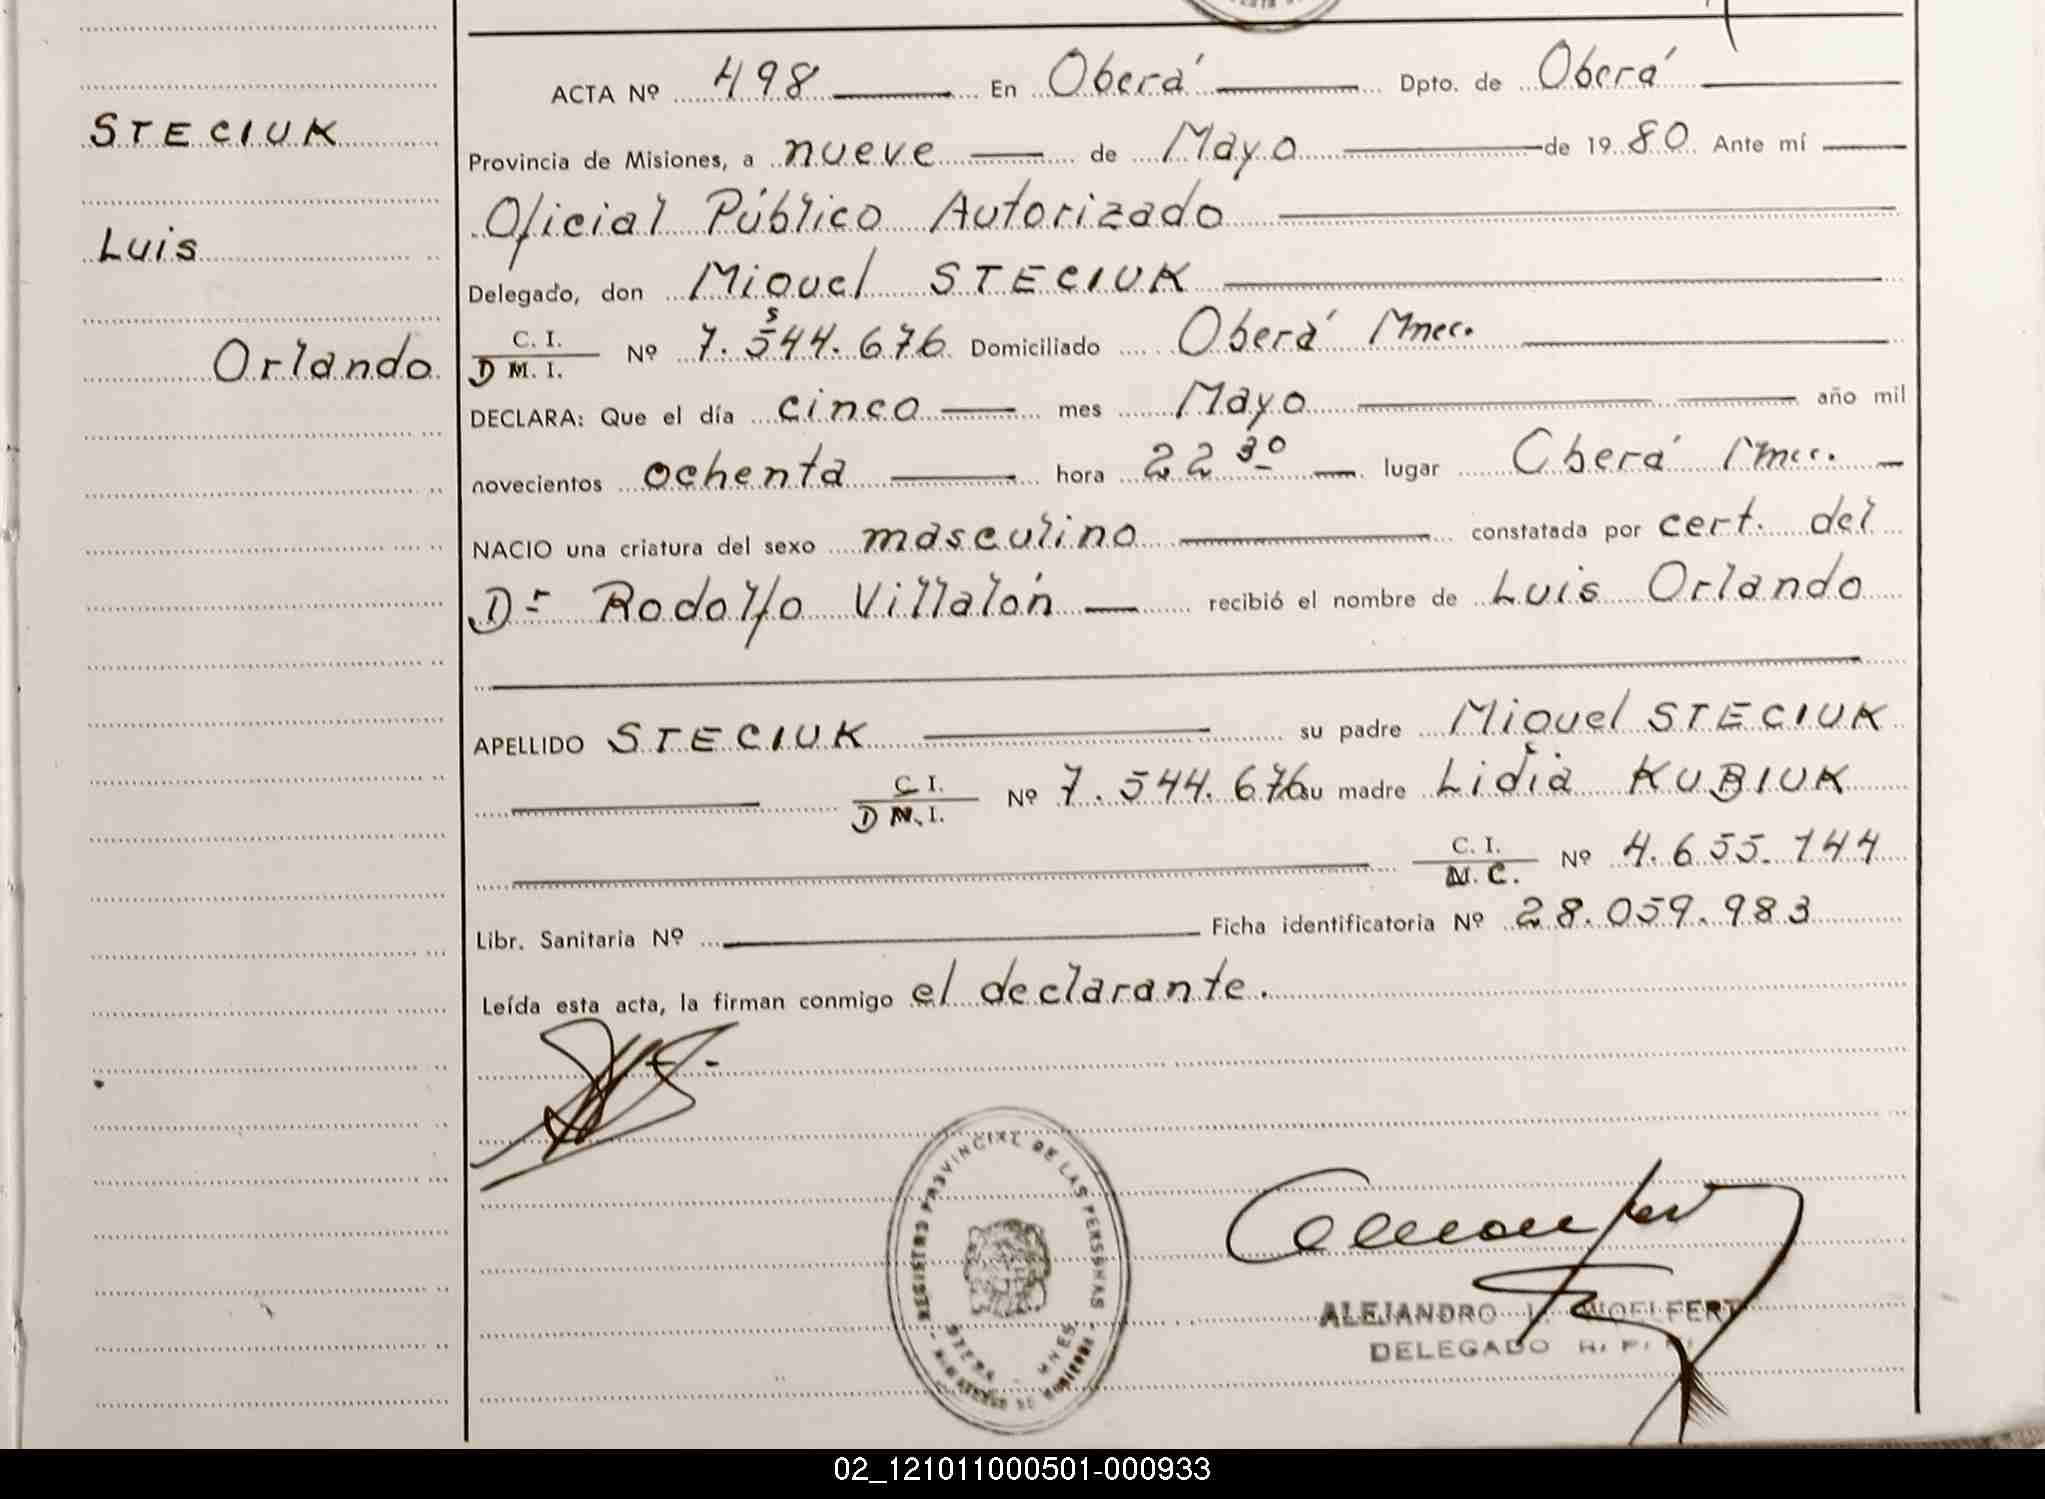 STECIUK
Luis
Orlando
ACTA Nº 498 En Oberá Dpto. de Oberá
Provincia de Misiones, a nueve de Mayo de 1980 Ante mí
Oficial Público Autorizado
Delegado, don Miguel STECIUK
C. I.
D M. I. Nº 7.544.676 Domiciliado Oberá Mnes.
DECLARA: Que el día cinco mes Mayo año mil
novecientos ochenta hora 22 30 lugar Oberá Mnes.
NACIO una criatura del sexo masculino constatada por cert. del
Dr Rodolfo Villalón recibió el nombre de Luis Orlando
APELLIDO STECIUK su padre Miguel STECIUK
C I.
D N. I. Nº 7.544.676 su madre Lidia KUBIUK
C. I.
M. C. Nº 4.655.144
Libr. Sanitaria Nº Ficha identificatoria Nº 28.059.983
Leída esta acta, la firman conmigo el declarante.
REGISTRO PROVINCIAL DE LAS PERSONAS
OBERA - MNES.
MINISTERIO DE GOBIERNO
ALEJANDRO WOELFERT
DELEGADO R. P.
02_121011000501-000933